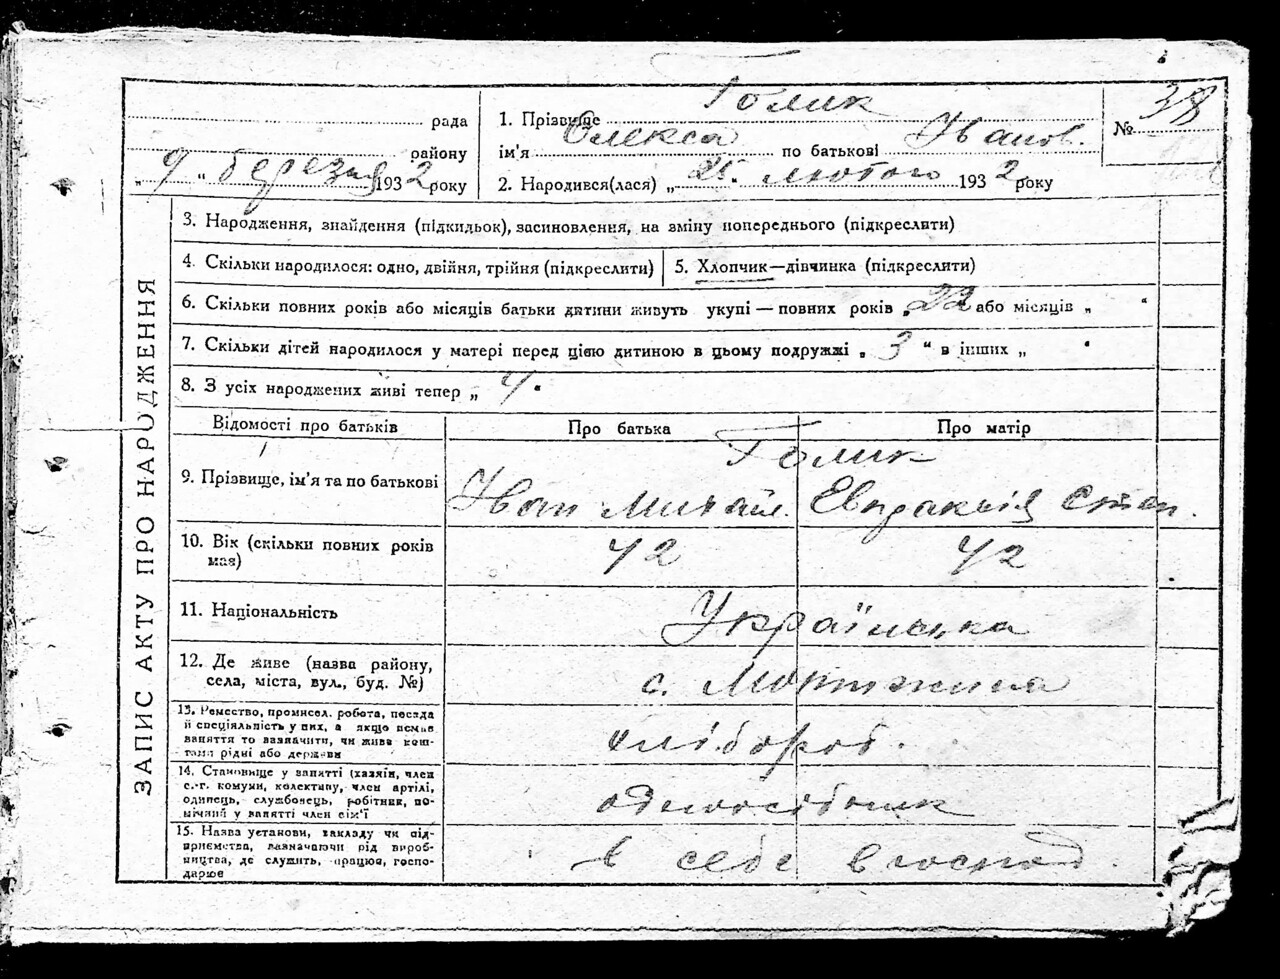 Голик
рада
1. Прізвище
№ 38
Олекса Іванов.
району
ім'я по батькові
„ 9 " березня 1932 року
2. Народився(лася) „ 25. лютого 1932 року
ЗАПИС АКТУ ПРО НАРОДЖЕННЯ
3. Народження, знайдення (підкидьок), засиновлення, на зміну попереднього (підкреслити)
4. Скільки народилося: одно, двійня, трійня (підкреслити) 5. Хлопчик—дівчинка (підкреслити)
6. Скільки повних років або місяців батьки дитини живуть укупі — повних років „ 22 або місяців „ "
7. Скільки дітей народилося у матері перед цією дитиною в цьому подружжі „ 3 " в інших „ "
8. З усіх народжених живі тепер „ 4 "
Відомості про батьків Про батька Про матір
Голик
9. Прізвище, ім'я та по батькові
Іван Михайл. Евдракыя Степ.
10. Вік (скільки повних років
має)
42 42
11. Національність Українська
12. Де живе (назва району,
села, міста, вул., буд. №)
с.
13. Ремество, промисел. робота, посада
й спеціяльність у них, а якщо немає
заняття то зазначити, чи живе кош-
тами рідні або держави
хлібороб.
14. Становище у занятті (хазяїн, член
с.-г. комуни, колективу, член артілі,
одинець, службовець, робітник, по-
мічний у занятті член сім'ї
одноосібник
15. Назва установи, закладу чи під-
приємства, зазначаючи рід вироб-
ництва, де служить, працює, госпо-
дарює
в себе в господ.